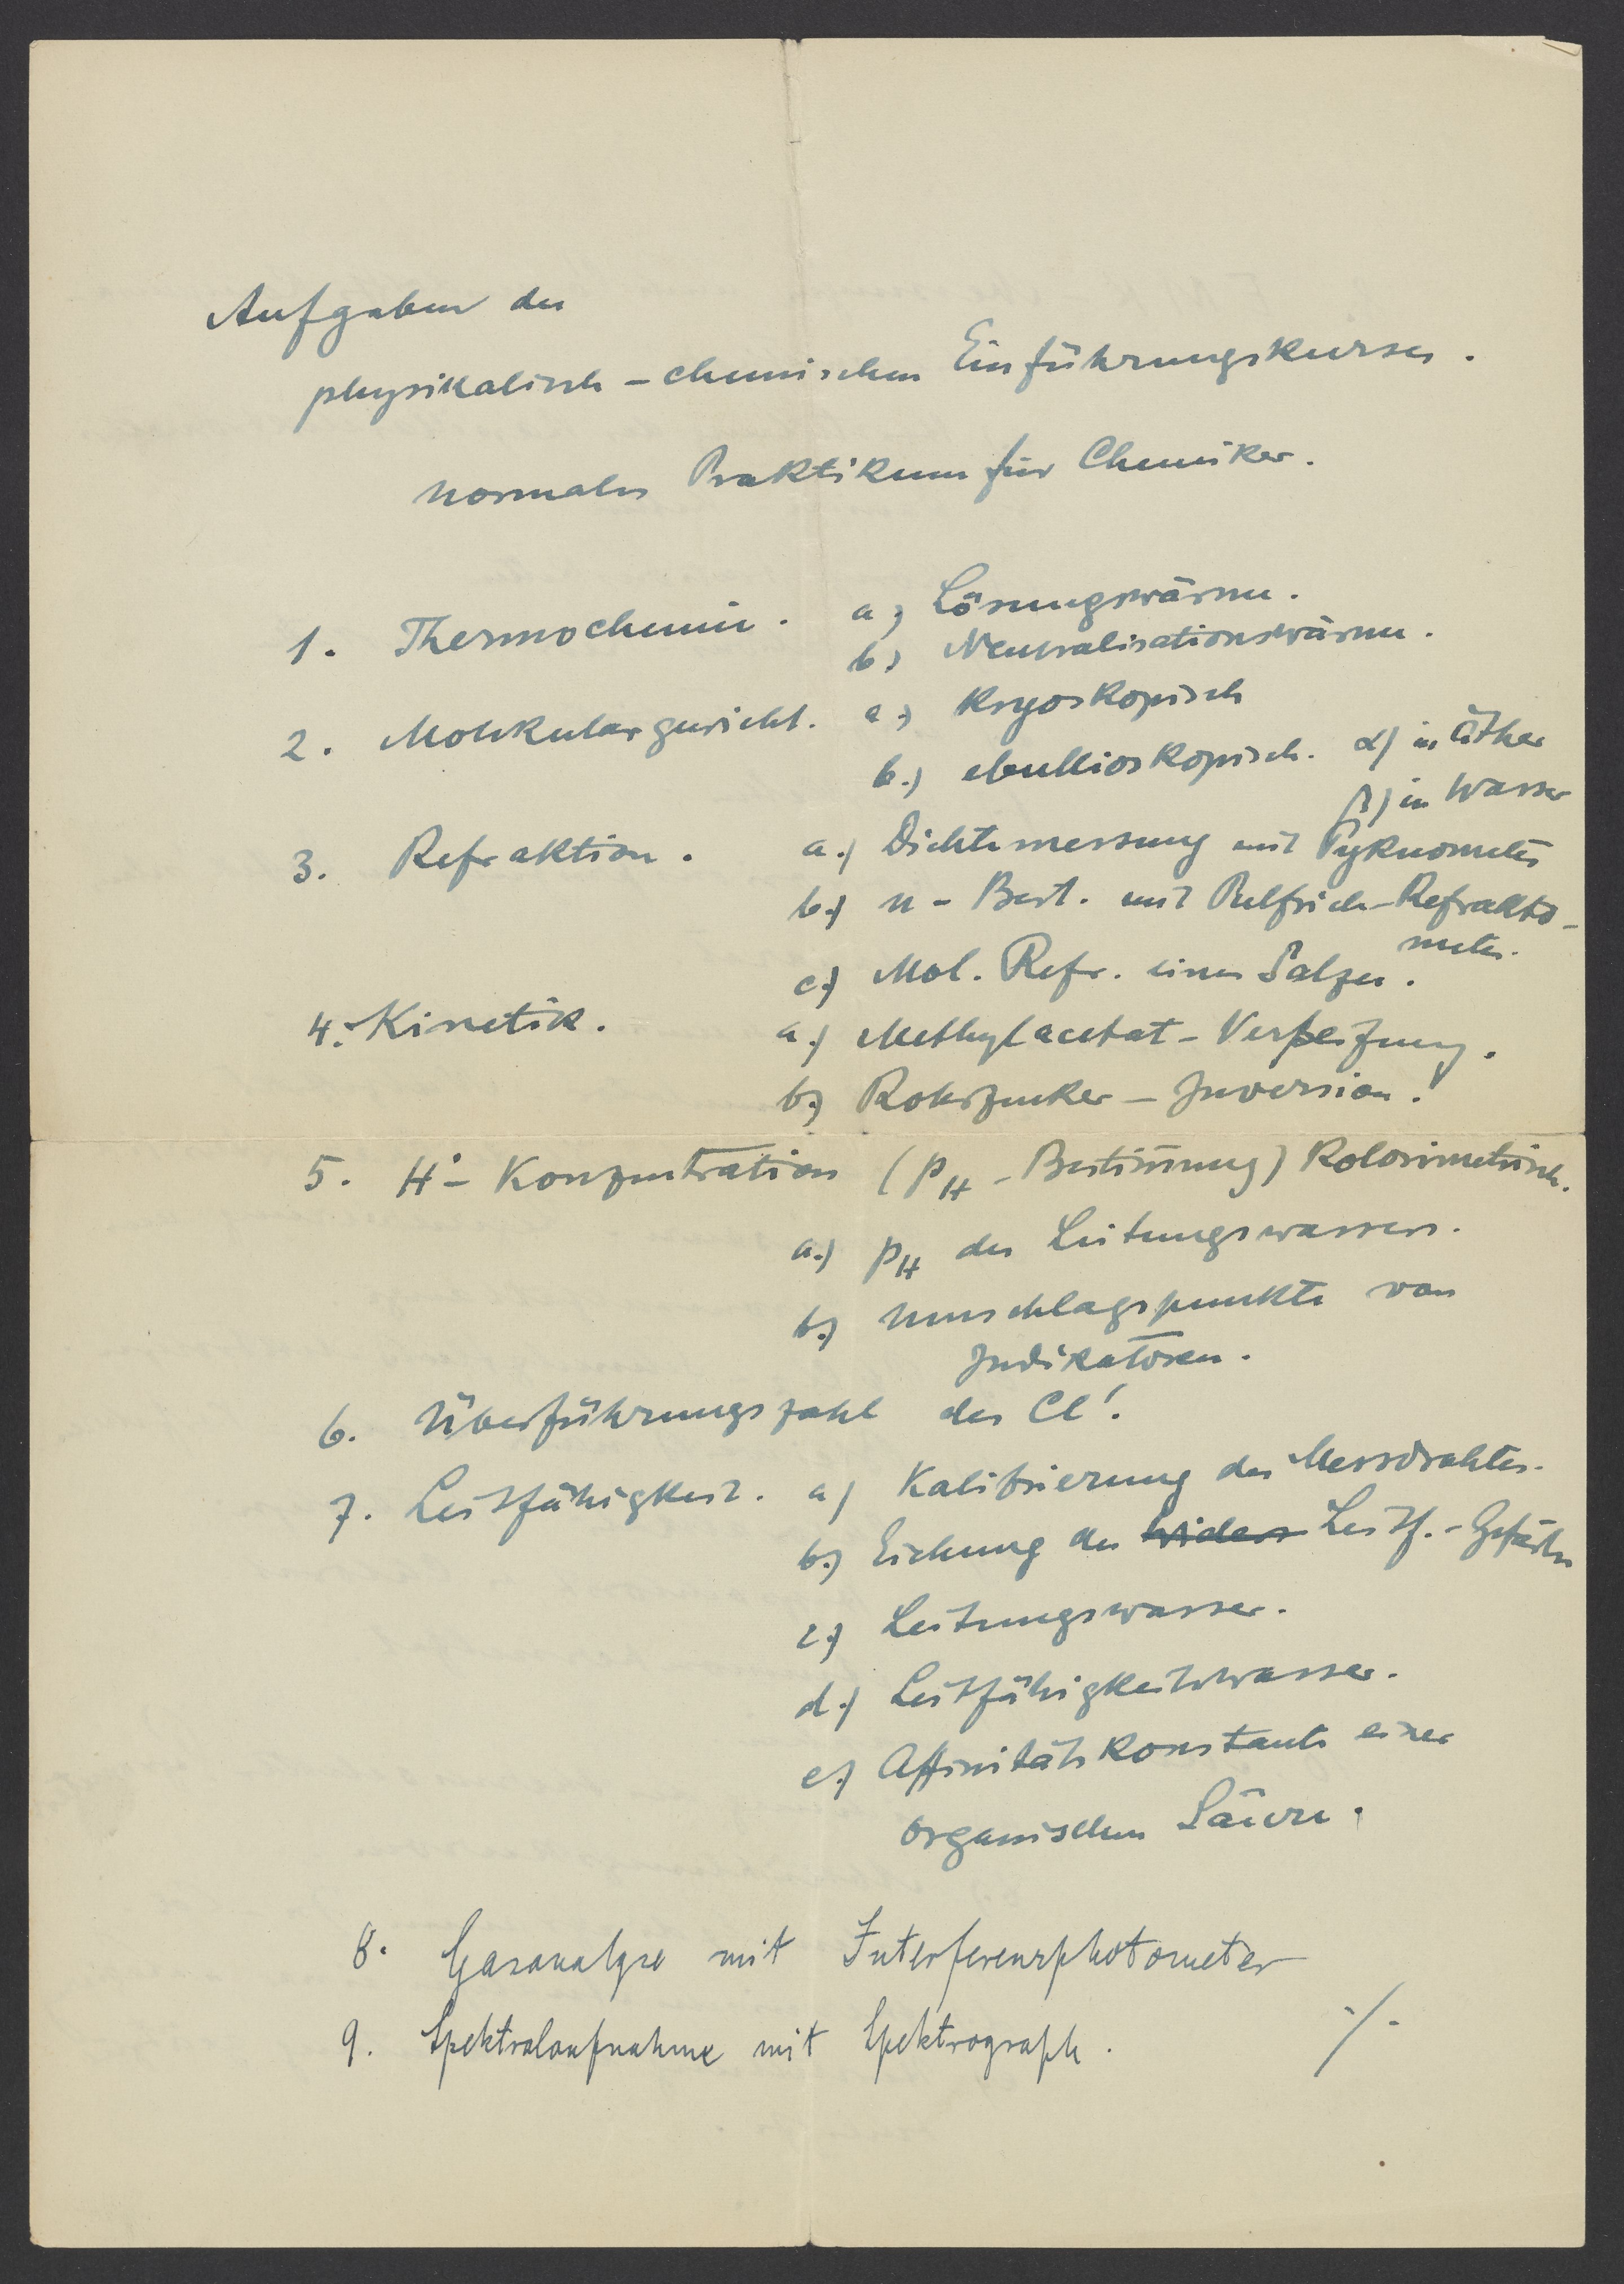 Aufgaben des
physikalisch-chemischen Einführungskurses.
Normales Praktikum für Chemiker.
1. Thermochemie. a) Lösungswärme.
b) Neutralisationswärme.
2. Molekulargewicht. a.) Kryoskopisch
b.) ebullioskopisch. α) in Äther
β) in Wasser
3. Refraktion. a.) Dichtemessung mit Pyknometer
b.) n-Best. mit Pulfrich-Refrakto-
meter.
c.) Mol. Refr. eines Salzes.
4. Kinetik. a.) Methylacetat-Verseifung.
b.) Rohrzucker-Inversion!
5. H˙-Konzentration (pH-Bestim̄ung) Kolorimetrisch.
a.) pH des Leitungswassers.
b.) Umschlagspunkte von
Indikatoren.
6. Überführungszahl des Cl'.
7. Leitfähigkeit. a) Kalibrierung des Messdrahtes.
b.) Eichung des ~~Wider~~ Leitf.-Gefäßes
c.) Leitungswasser.
d.) Leitfähigkeitswasser.
e.) Affinitätskonstante einer
organischen Säure.
8. Gasanalyse mit Interferenzphotometer
9. Spektralaufnahme mit Spektrograph. ./.